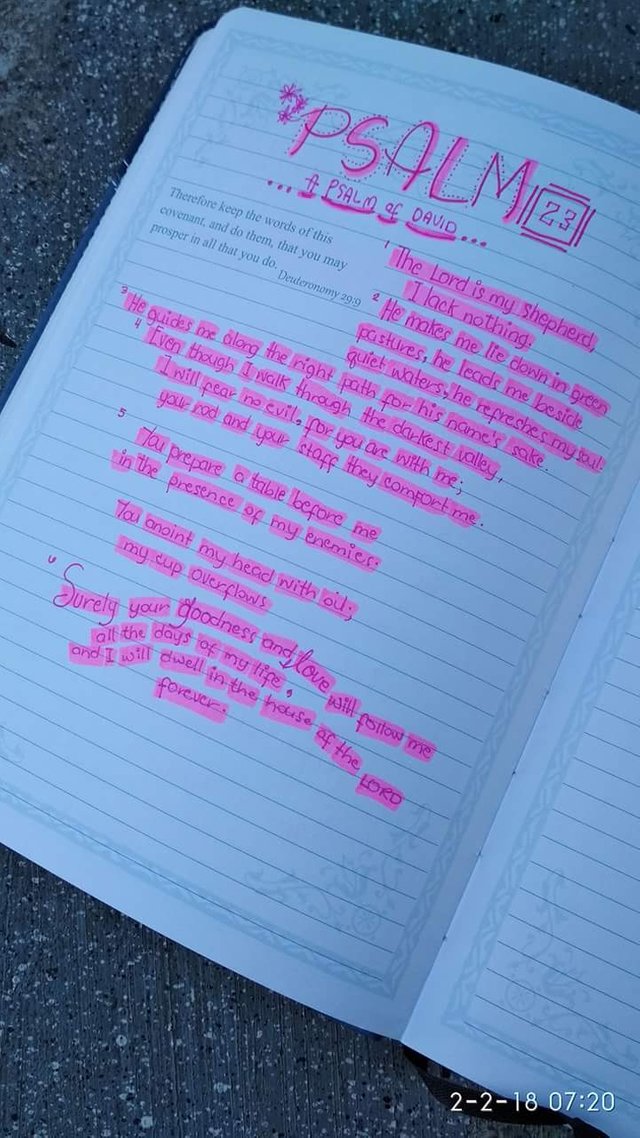 PSALM 23
... A PSALM of DAVID ...
Therefore keep the words of this
covenant, and do them, that you may
prosper in all that you do.
Deuteronomy 29:9
1 The Lord is my shepherd,
I lack nothing.
2 He makes me lie down in green
pastures, he leads me beside
quiet waters, he refreshes my soul.
3 He guides me along the right path for his name's sake.
4 Even though I walk through the darkest valley,
I will fear no evil, for you are with me;
your rod and your staff they comfort me.
5 You prepare a table before me
in the presence of my enemies.
You anoint my head with oil;
my cup overflows
6 Surely your goodness and love will follow me
all the days of my life,
and I will dwell in the house of the LORD
forever.
2-2-18 07:20